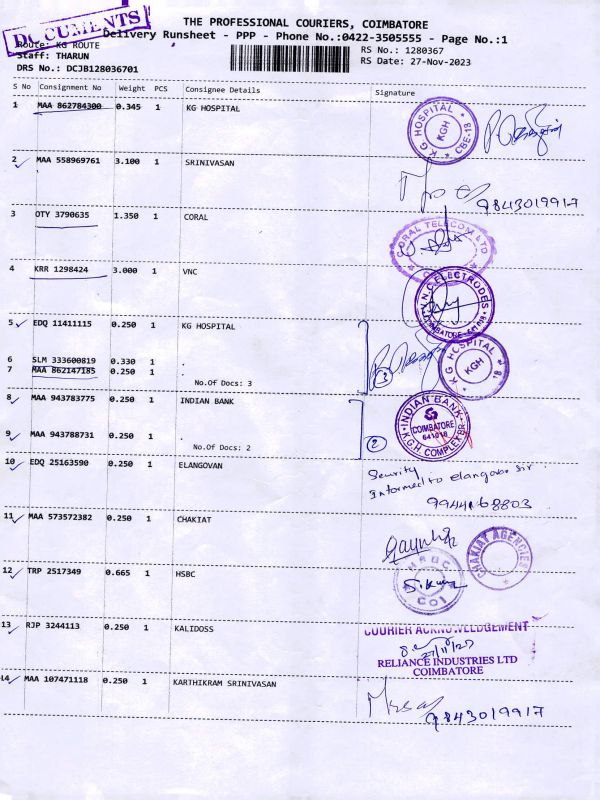 DOCUMENTS
THE PROFESSIONAL COURIERS, COIMBATORE
Delivery Runsheet - PPP - Phone No.:0422-3505555 - Page No.:1
Route: KG ROUTE
RS No.: 1280367
Staff: THARUN
RS Date: 27-Nov-2023
DRS No.: DCJB128036701
S No Consignment No Weight PCS Consignee Details Signature
1 MAA 862784300 0.345 1 KG HOSPITAL
K G HOSPITAL KGH CBE-18
2 MAA 558969761 3.100 1 SRINIVASAN
9843019917
3 OTY 3790635 1.350 1 CORAL
CORAL TELECOM LTD
4 KRR 1298424 3.000 1 VNC
V.N.C ELECTRODES COIMBATORE
5 EDQ 11411115 0.250 1 KG HOSPITAL
K G HOSPITAL KGH
6 SLM 333600819 0.330 1 .
7 MAA 862147185 0.250 1 .
No.Of Docs: 3
3
8 MAA 943783775 0.250 1 INDIAN BANK
INDIAN BANK COIMBATORE 641018 K.G.H COMPLEX BR
9 MAA 943788731 0.250 1 .
No.Of Docs: 2
2
10 EDQ 25163590 0.250 1 ELANGOVAN
Security
Informed to elangovan sir
11 MAA 573572382 0.250 1 CHAKIAT
CHAKIAT AGENCIES
12 TRP 2517349 0.665 1 HSBC
HSBC
13 RJP 3244113 0.250 1 KALIDOSS
COURIER ACKNOWLEDGEMENT
27/11/23
RELIANCE INDUSTRIES LTD
COIMBATORE
14 MAA 107471118 0.250 1 KARTHIKRAM SRINIVASAN
9843019917